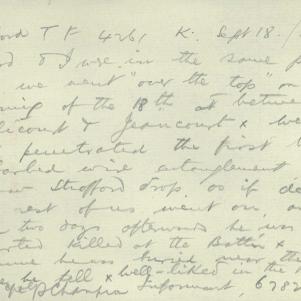 ord T F 4261 K. Sept 18
& I were in the same p
we went "over the top" on
ing of the 18th at betwee
licourt & Jeancourt & we
penetrated the first
barbed wire entanglement
saw Strafford drop as if de
rest of us went on, an
two days afterwards he was
rted killed at the Battn &
me he was buried near the
he fell & well-liked in the
Champion Informant, 6782